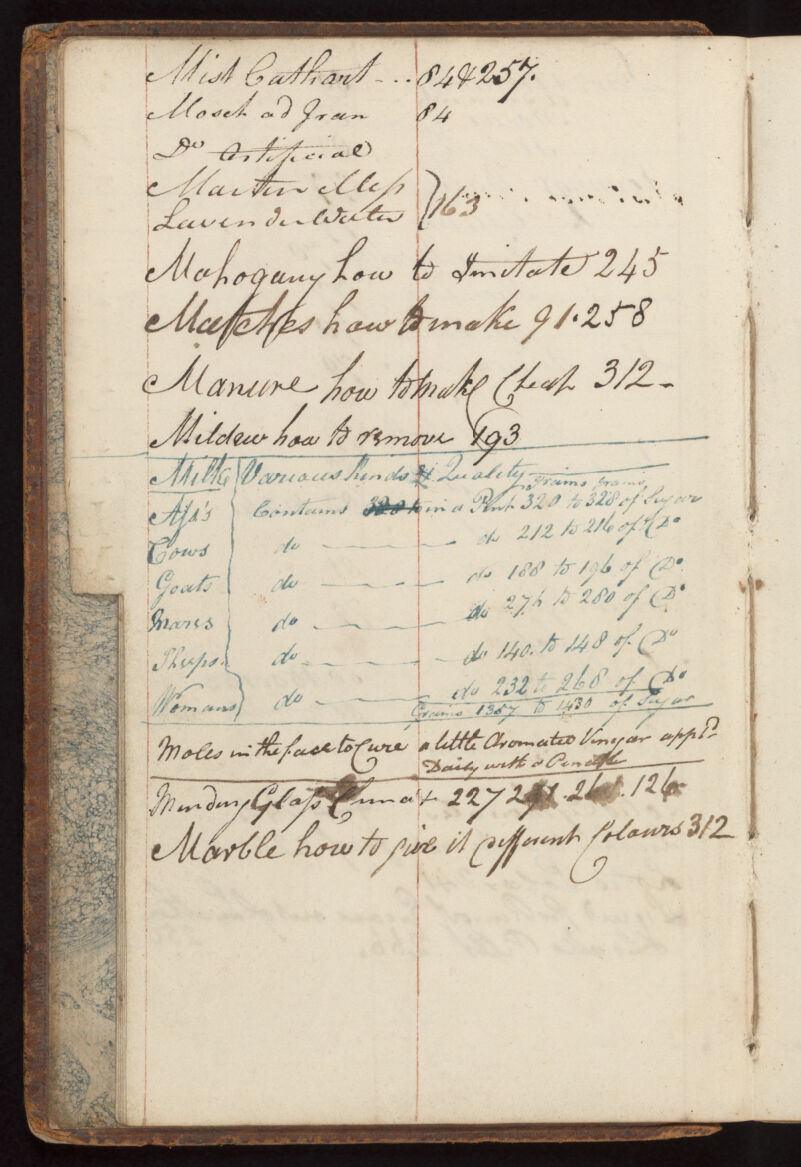 Mist Cathart - .. 84 & 257.
Mosch ad fran 84
Do Artificial
Martin Mess
Lavender Water } 163
Mahogany how to Imitate 245
Matches how to make 91.258
Manure how to make Cheap 312 -
Mildew how to remove 193
Milk Various kinds & Quality grains grains
Ass's Contains in a Pint 320 to 328 of Sugar
Cows do do 212 to 216 of Do
Goats do do 188 to 196 of Do
Mares do do 276 to 280 of Do
Sheeps do do 140. to 148 of Do
Womans do do 232 to 268 of Do
Grains 1357 to 1430 of Sugar
Moles in the face to Cure a little Aromatic Vinegar appd
Daily with a Pencil
Mending Glass China &c 227 .126
Marble how to give it different Colours 312